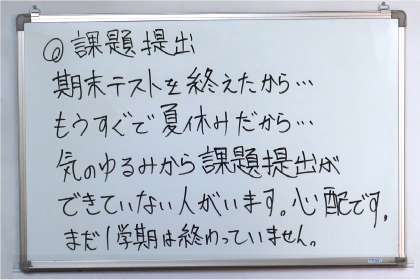 ◎課題提出
期末テストを終えたから…
もうすぐで夏休みだから…
気のゆるみから課題提出が
できていない人がいます。心配です。
まだ1学期は終わっていません。